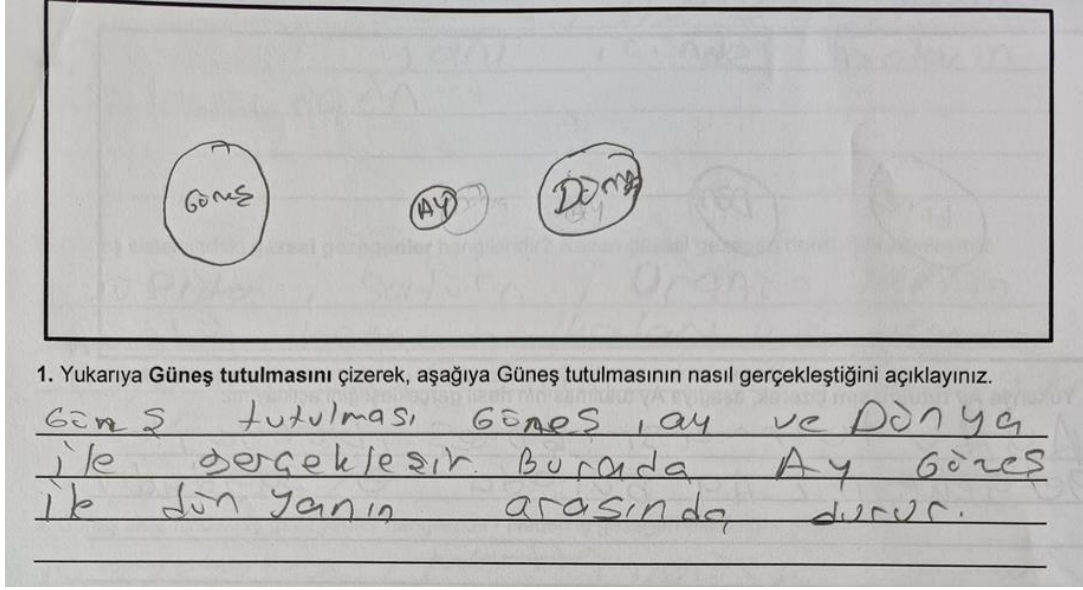 GÜNEŞ
AY
Dünya
1. Yukarıya Güneş tutulmasını çizerek, aşağıya Güneş tutulmasının nasıl gerçekleştiğini açıklayınız.
Günş tutulması Güneş, ay ve Dünya
ile gerçekleşir. Burada Ay Güneş
ile dünyanın arasında durur.